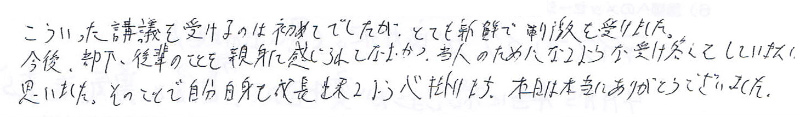 こういった講義を受けるのは初めてでしたが、とても新鮮で刺激を受けました。
今後、部下、後輩のことを親身に感じられてなおかつ、当人のためになるような受け答えをしていきたいと
思いました。そのことで自分自身も成長出来るよう心掛けます。本日は本当にありがとうございました。